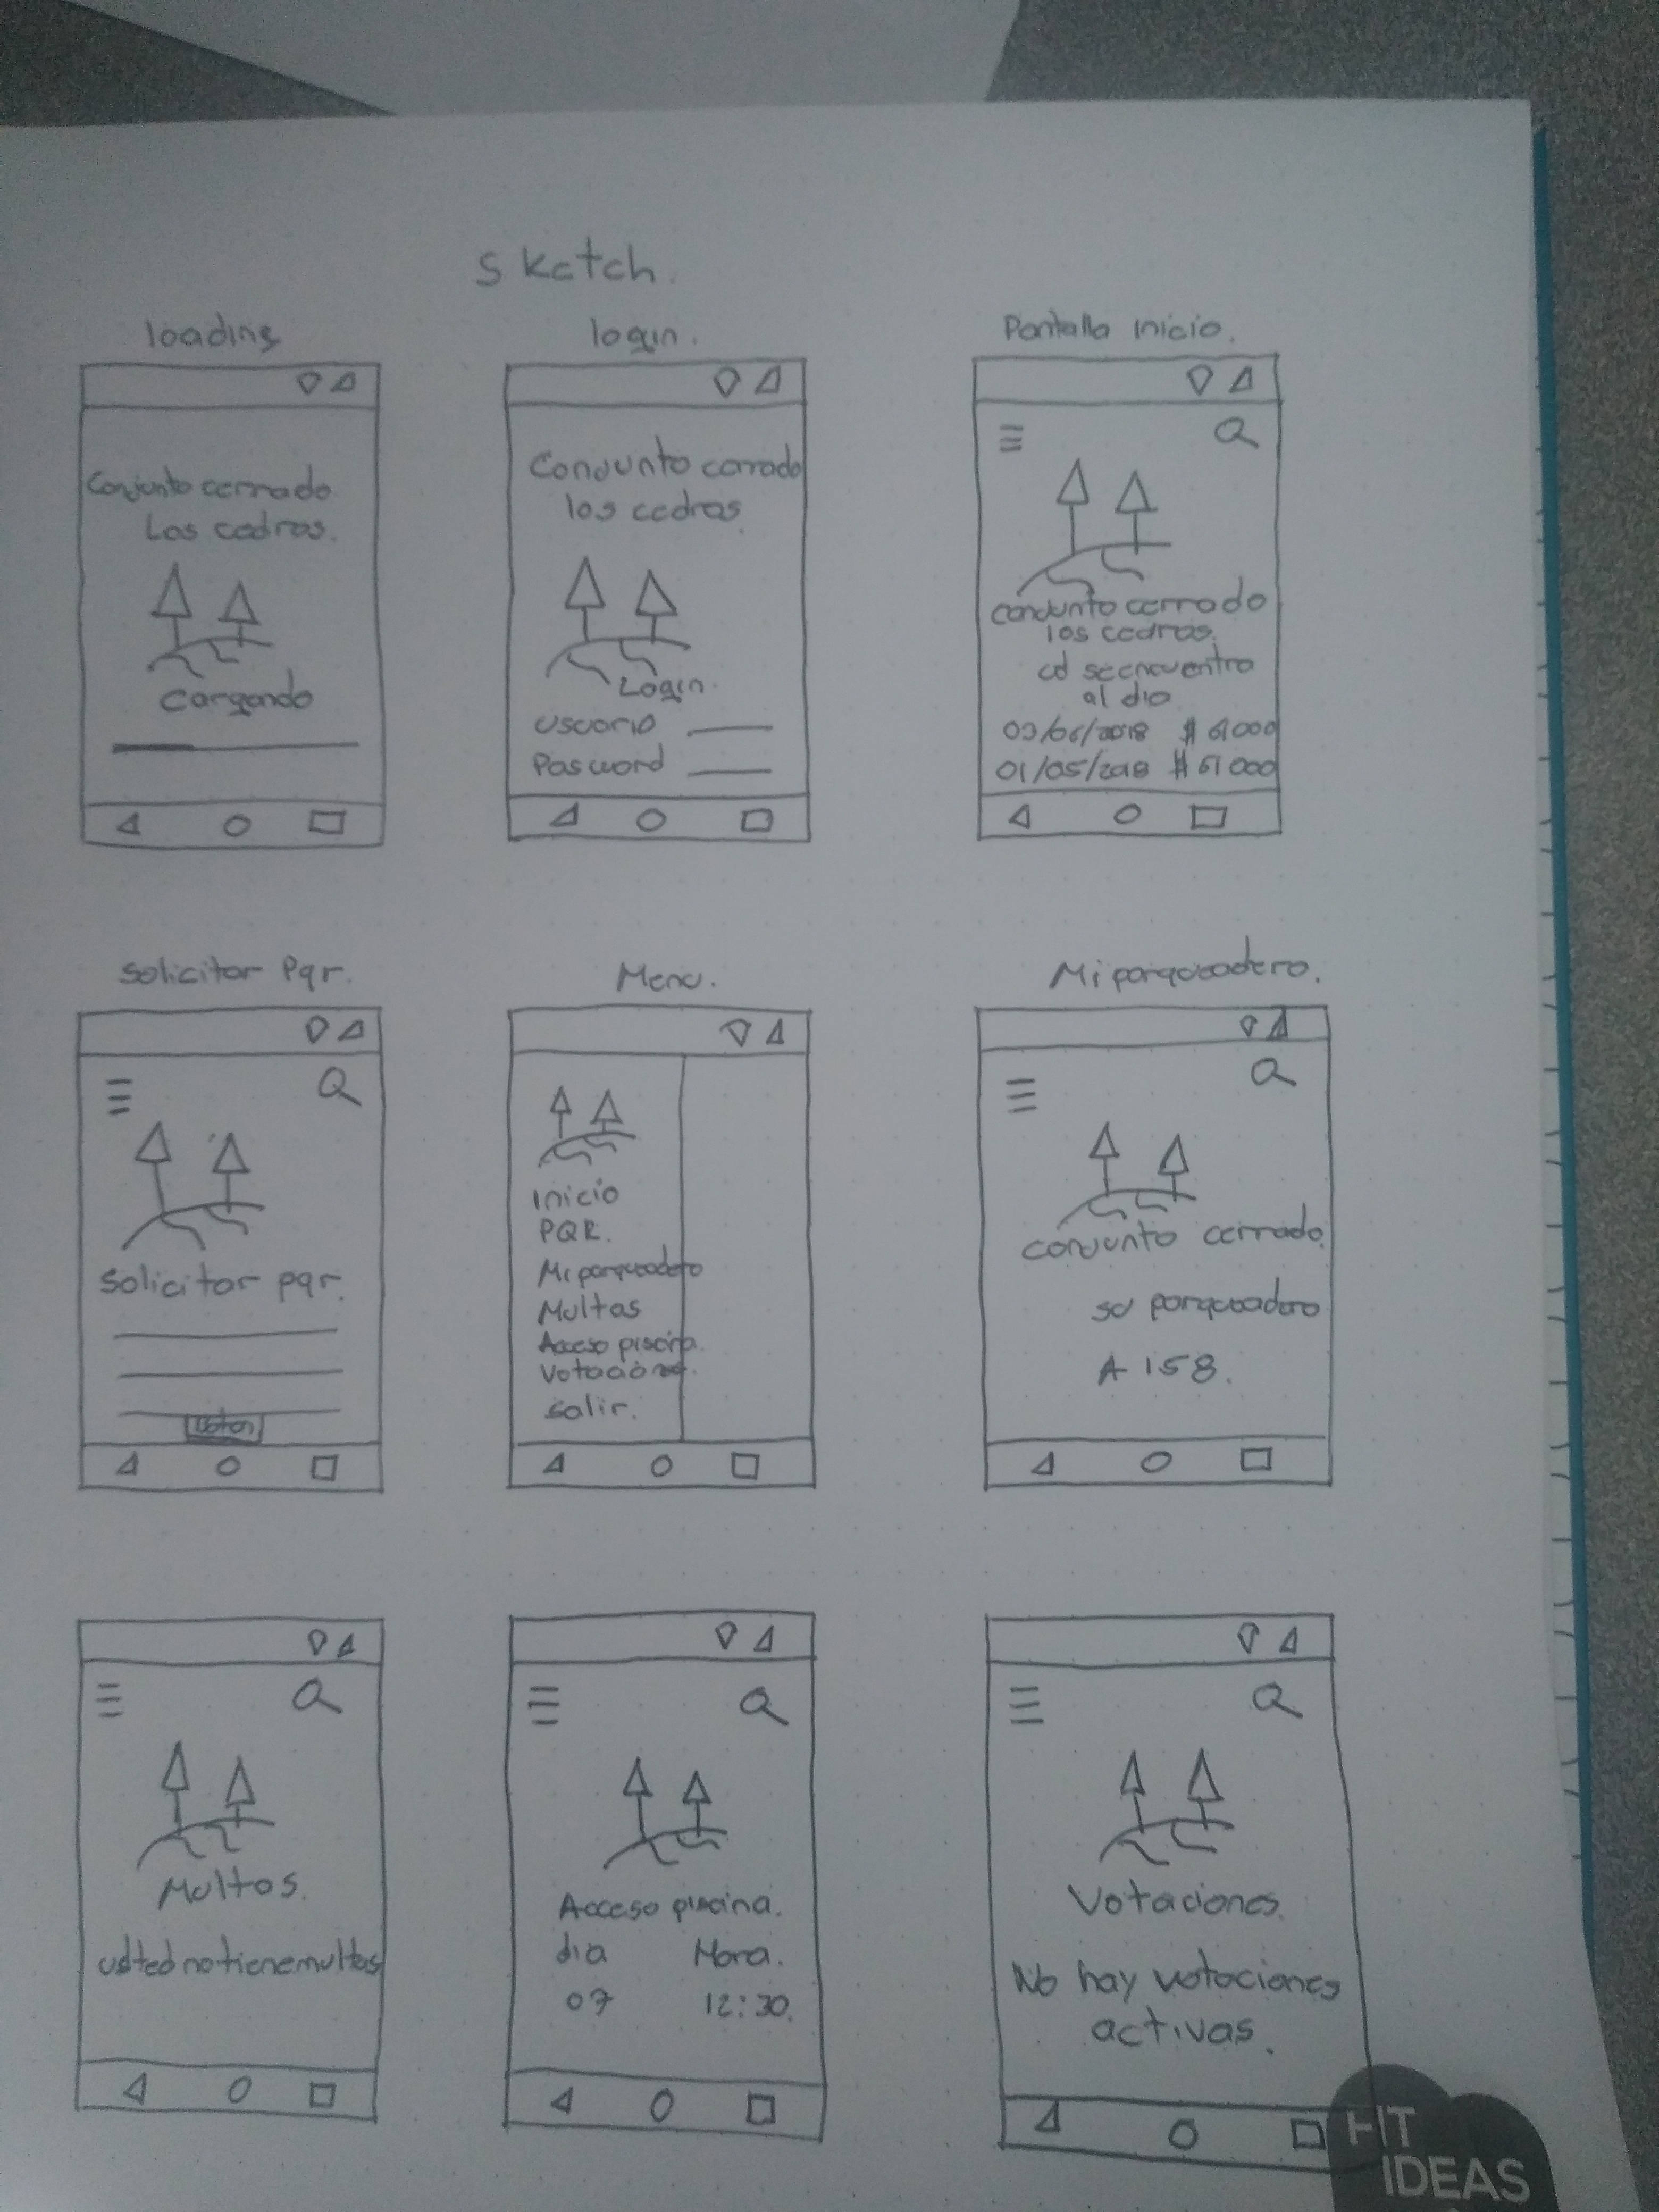 Sketch.
loading
login.
Pantalla inicio.
Conjunto cerrado
Los cedros.
Cargando
Conjunto cerrado
los cedros.
Login.
Usuario
Pasword
conjunto cerrado
los cedros.
ud se encuentra
al dia
/2018 $ 61000
01/05/2018 $ 61000
Solicitar Pqr.
Menu.
Mi parqueadero.
Solicitar pqr.
Boton
Inicio
PQR.
Mi parqueadero
Multas
Acceso piscina.
Votaciones.
salir.
conjunto cerrado.
su parqueadero
A 158.
Multas.
usted no tiene multas
Acceso piscina.
dia Hora.
07 12:30.
Votaciones.
No hay votaciones
activas.
HIT
IDEAS